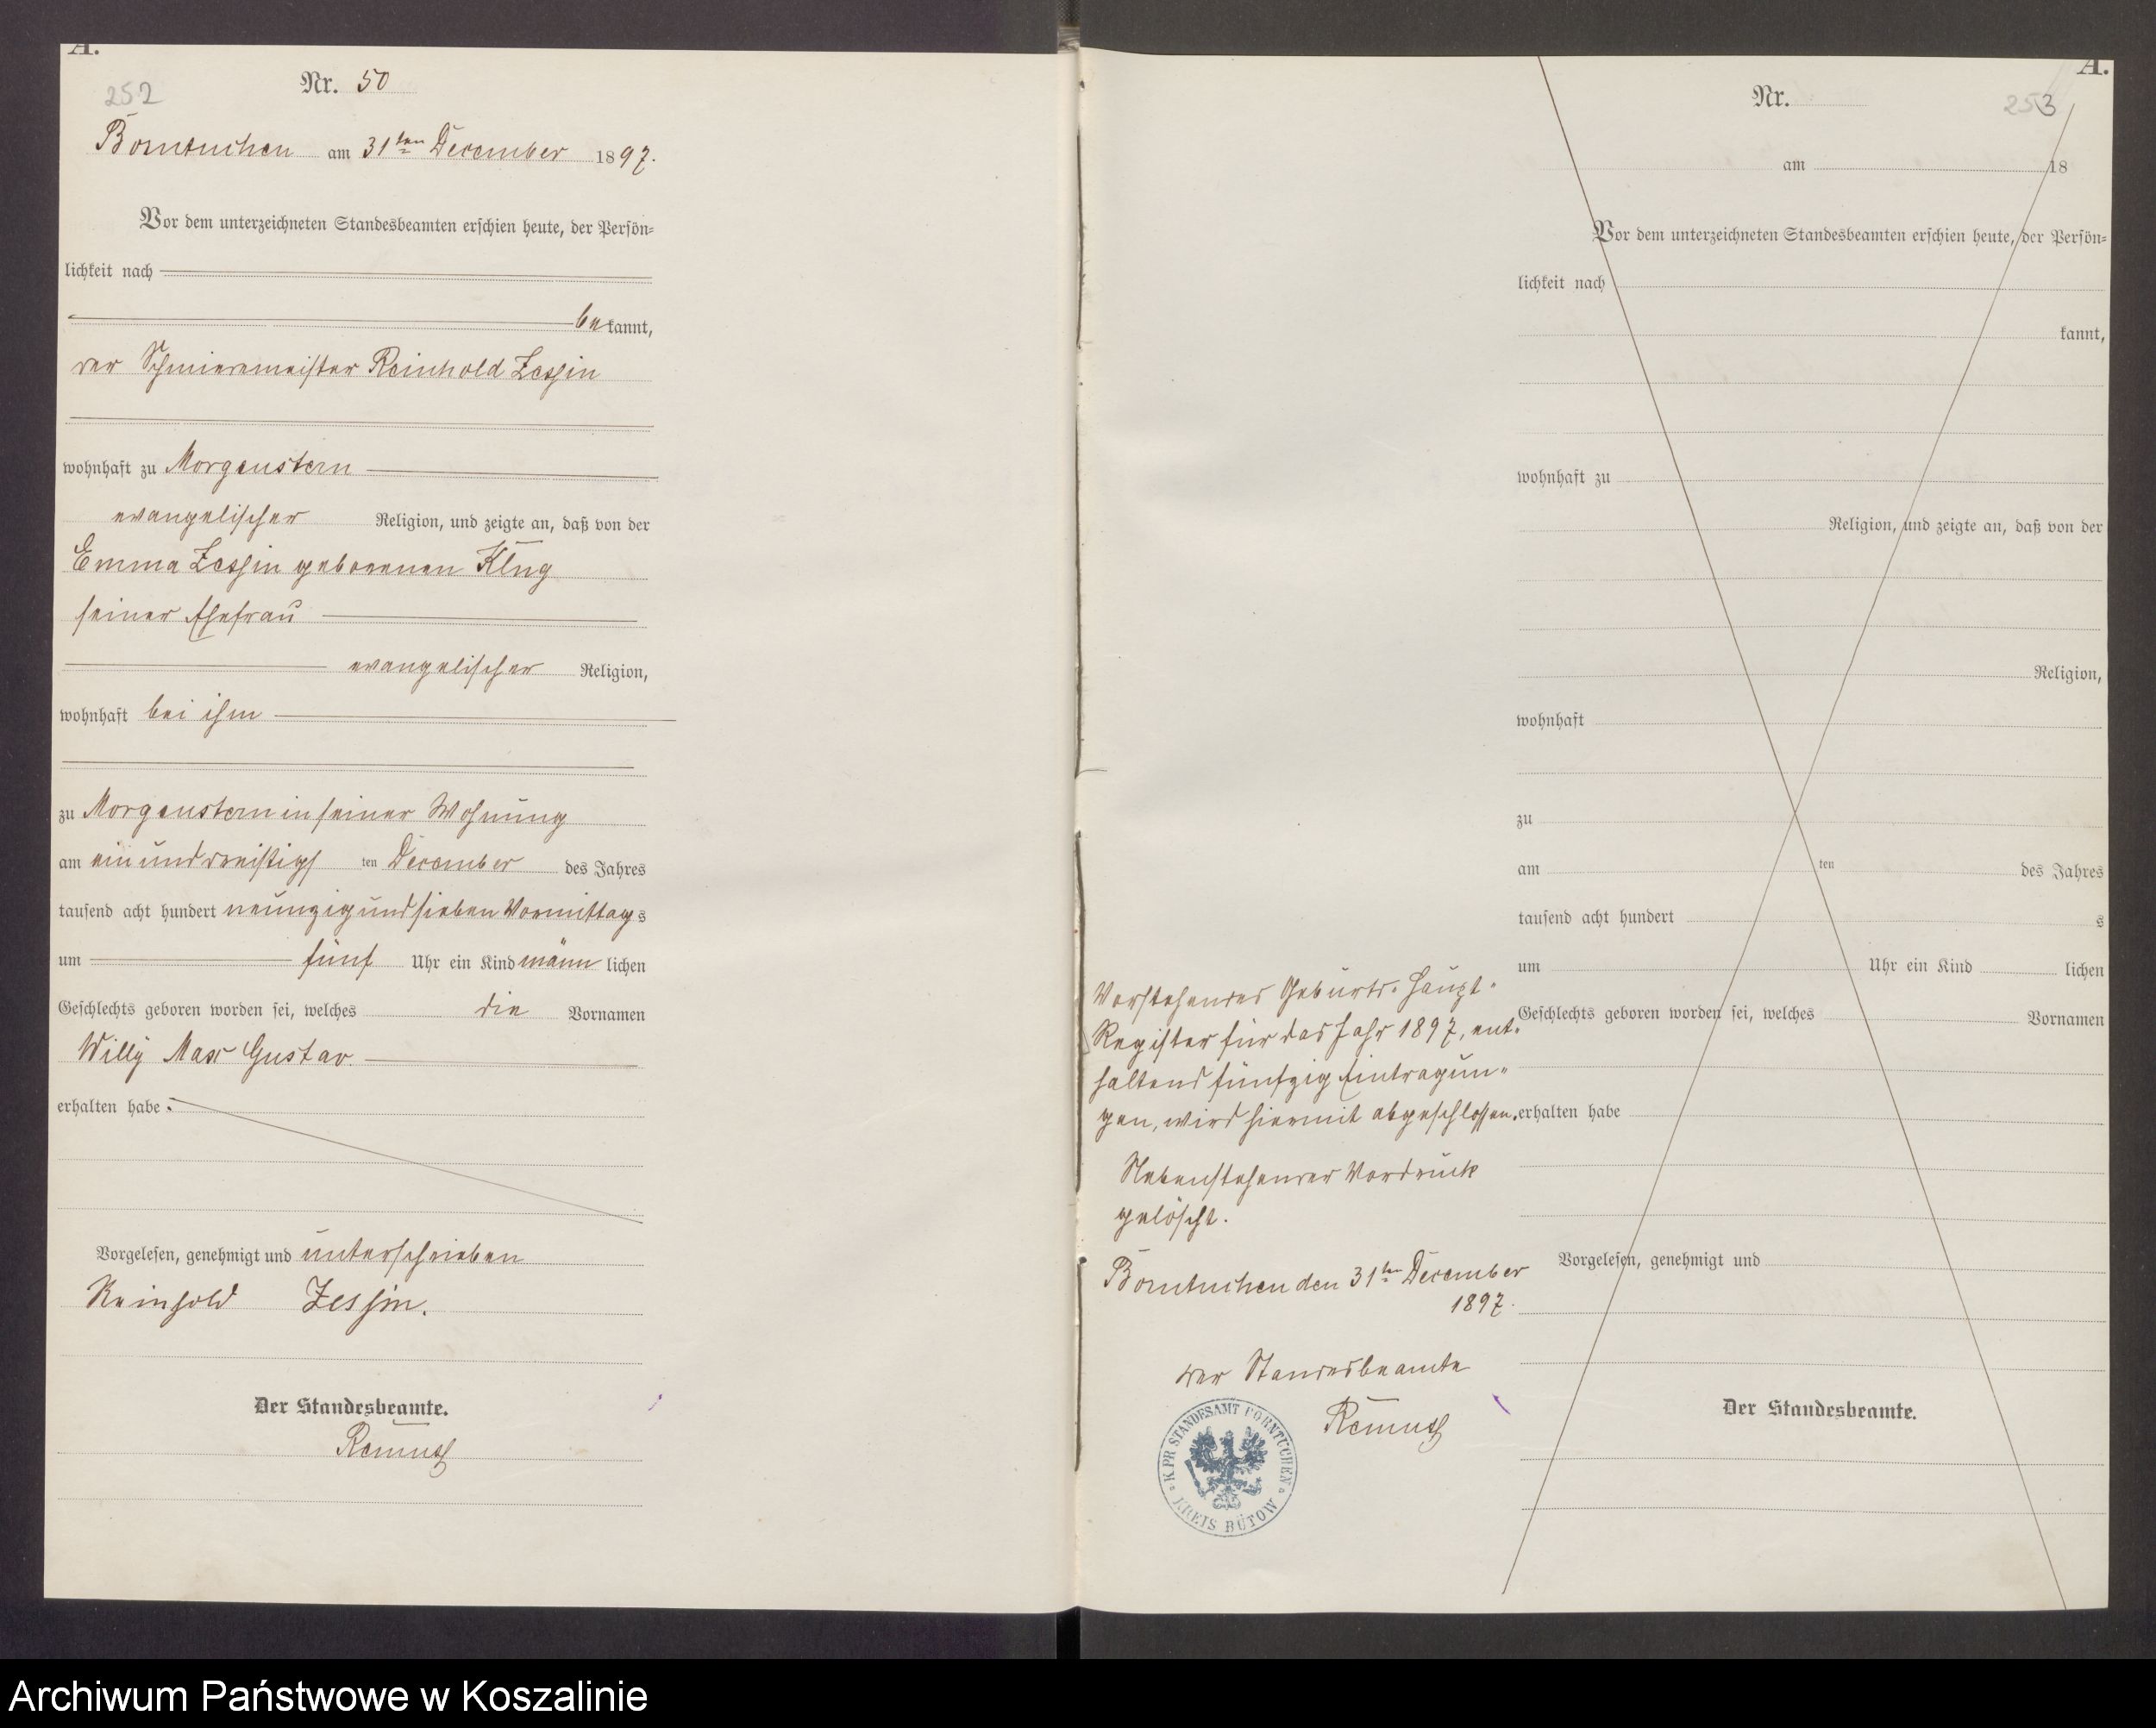 A.
252
Nr. 50
Borntuchen am 31ten December 1897.
Vor dem unterzeichneten Standesbeamten erschien heute, der Persön-
lichkeit nach
bekannt,
der Schmiedemeister Reinhold Zessin
wohnhaft zu Morgenstern
evangelischer Religion, und zeigte an, daß von der
Emma Zessin geborenen Klug
seiner Ehefrau
evangelischer Religion,
wohnhaft bei ihm
zu Morgenstern in seiner Wohnung
am ein und dreißigsten December des Jahres
tausend acht hundert neunzig und sieben Vormittags
um fünf Uhr ein Kind männlichen
Geschlechts geboren worden sei, welches die Vornamen
Willy Max Gustav
erhalten habe.
Vorgelesen, genehmigt und unterschrieben
Reinhold Zessin.
Der Standesbeamte.
Remus
Vorstehendes Geburts-Haupt-
Register für das Jahr 1897, ent-
haltend fünfzig Eintragun-
gen, wird hiermit abgeschlossen.
Nebenstehender Vordruck
gelöscht.
Borntuchen den 31ten December
1897.
Der Standesbeamte
Remus
K. PR. STANDESAMT BORNTUCHEN
KREIS BÜTOW
A.
253
Nr.
am 18
Vor dem unterzeichneten Standesbeamten erschien heute, der Persön-
lichkeit nach
kannt,
wohnhaft zu
Religion, und zeigte an, daß von der
Religion,
wohnhaft
zu
am ten des Jahres
tausend acht hundert s
um Uhr ein Kind lichen
Geschlechts geboren worden sei, welches Vornamen
erhalten habe
Vorgelesen, genehmigt und
Der Standesbeamte.
Archiwum Państwowe w Koszalinie